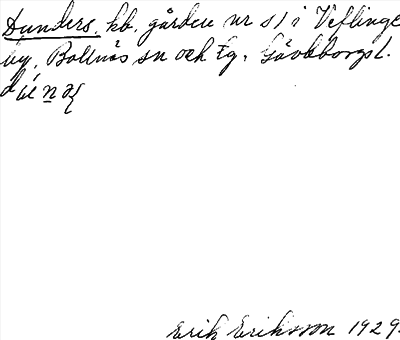 Dunders, kb. gården nr 51 i Veflinge
by, Bollnäs sn och tg, Gävleborgs l.
Erik Eriksson 1929.